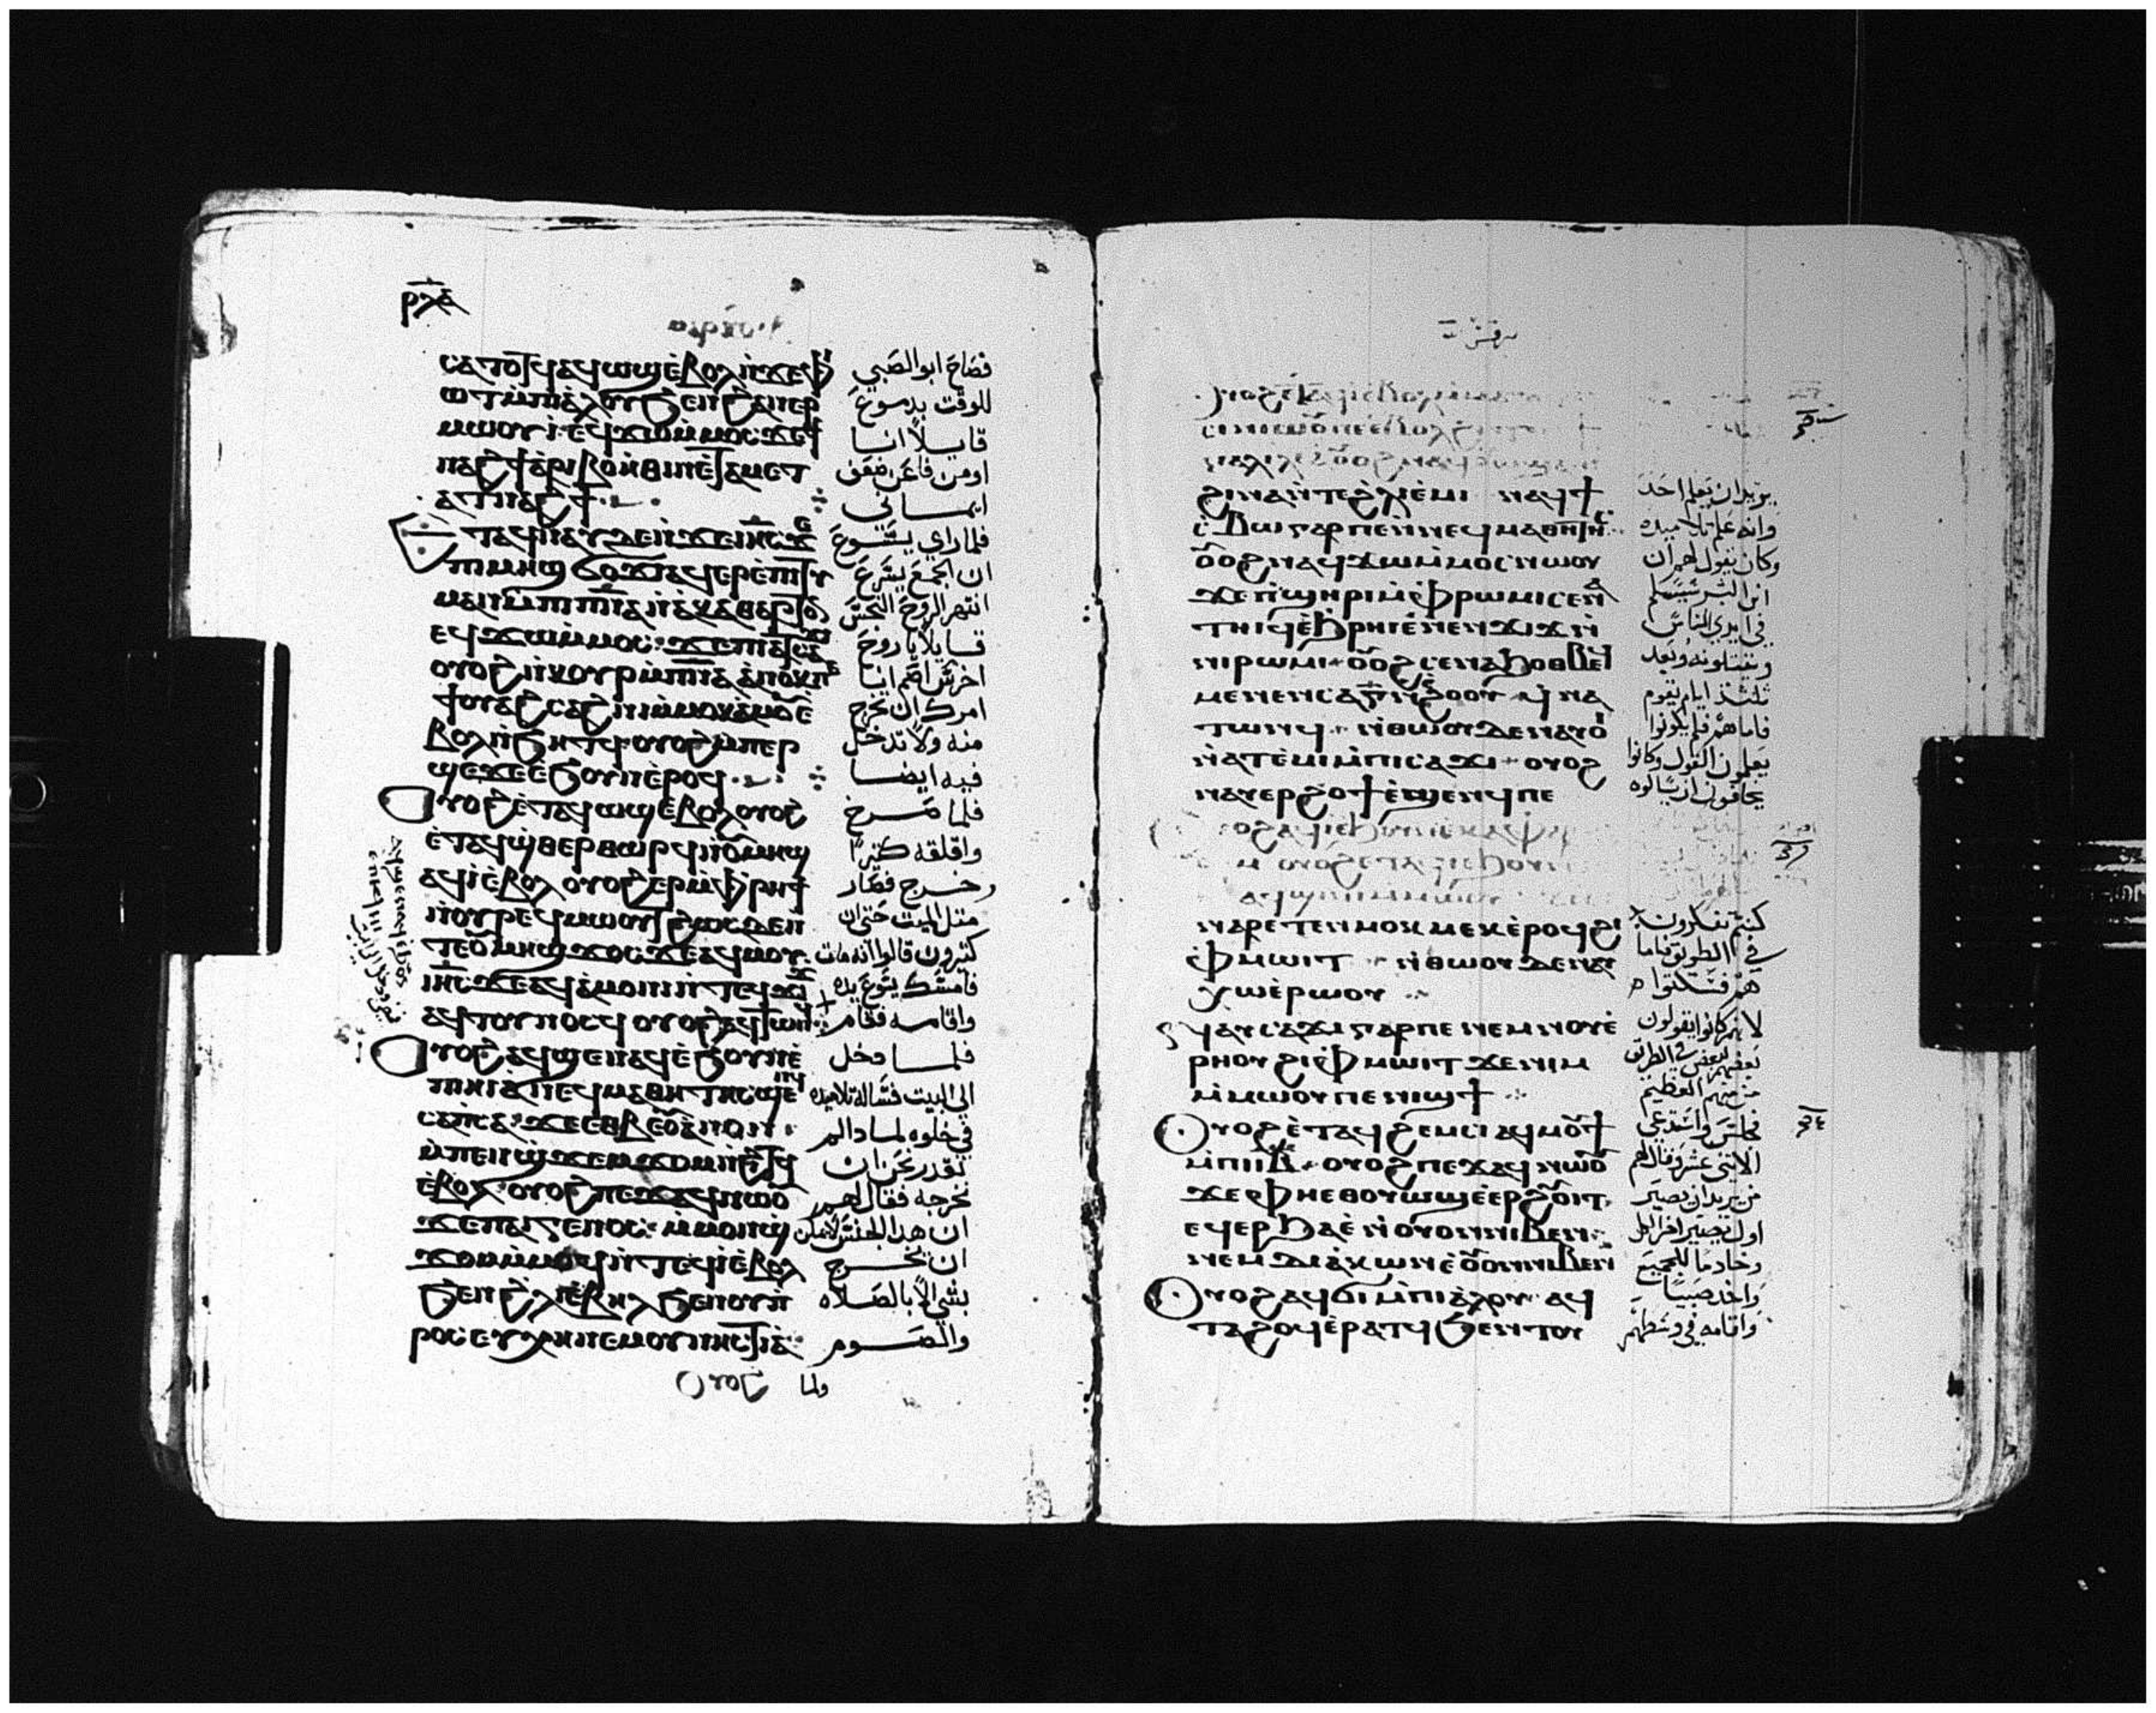 ⲣⲗⲇ
ⲥⲁⲧⲟⲧϥ ⲁϥⲱϣ ⲉ̀ⲃⲟⲗ ⲛ̀ϫⲉⲫⲓ
ⲱⲧ ⲙ̀ⲡⲓⲁ̀ⲗⲟⲩ ϧⲉⲛ ϩⲁⲛⲉⲣ
ⲙⲱⲟⲩⲓ̀ ⲉϥϫⲱ ⲙ̀ⲙⲟⲥ ϫⲉϯ
ⲛⲁϩϯ ⲁ̀ⲣⲓⲃⲟⲏ̀ⲑⲓⲛ ⲉ̀ⲧⲁⲙⲉⲧ
ⲁⲧⲛⲁϩϯ
ⲉ̀ⲧⲁϥⲛⲁⲩ ⲇⲉ ⲛ̀ϫⲉⲓⲏ̅ⲥ̅ ϫⲉ
ⲡⲓⲙⲏϣ ϭⲟϫⲓ ⲁϥⲉⲣⲉ̀ⲡⲓⲧⲓ
ⲙⲁⲛ ⲙ̀ⲡⲓⲡ̅ⲛ̅ⲁ̅ ⲛ̀ⲁ̀ⲕⲁⲑⲁⲣⲧⲟⲛ
ⲉϥϫⲱ ⲙ̀ⲙⲟⲥ ϫⲉⲡⲓⲁⲧⲥⲁϫⲓ
ⲟⲩⲟϩ ⲛ̀ⲕⲟⲩⲣ ⲙ̀ⲡ̅ⲛ̅ⲁ̅ ⲁ̀ⲛⲟⲕ ⲡⲉ
ϯⲟⲩⲁϩⲥⲁϩⲛⲓ ⲙ̀ⲙⲟⲕ ⲁ̀ⲙⲟⲩ ⲉ̀
ⲃⲟⲗ ⲛ̀ϧⲏⲧϥ ⲟⲩⲟϩ ⲙ̀ⲡⲉⲣ
ϣⲉ ϫⲉ ⲉ̀ϧⲟⲩⲛ ⲉ̀ⲣⲟϥ
ⲟⲩⲟϩ ⲉ̀ⲧⲁϥⲱϣ ⲉ̀ⲃⲟⲗ ⲟⲩⲟϩ
ⲉ̀ⲧⲁϥϣ̀ⲑⲉⲣⲑⲱⲣϥ ⲛ̀ⲟⲩⲙⲏϣ
ⲁϥⲓ̀ ⲉ̀ⲃⲟⲗ ⲟⲩⲟϩ ⲉⲣ ⲙ̀ⲫⲣⲏϯ
ⲛ̀ⲟⲩⲣⲉϥⲙⲱⲟⲩⲧ ϩⲱⲥ ⲇⲉ ⲛ̀
ⲧⲉⲟⲩⲙⲏϣ ϫⲟⲥ ϫⲉⲁϥⲙⲟⲩ
ⲓⲏ̅ⲥ̅ ⲇⲉ ⲁϥⲁ̀ⲙⲟⲛⲓ ⲛ̀ⲧⲉϥϫⲓϫ
ⲁϥⲧⲟⲩⲛⲟⲥϥ ⲟⲩⲟϩ ⲁϥⲧⲱⲛϥ
ⲟⲩⲟϩ ⲁϥϣⲉⲛⲁϥ ⲉ̀ϧⲟⲩⲛ ⲉ̀
ⲡⲏⲓ ⲁ̀ⲛⲉϥⲙⲁⲑⲏⲧⲏⲥ ϣⲉⲛϥ
ⲥⲁⲡ̀ⲥⲁ ϫⲉ ⲉⲑⲃⲉⲟⲩ ⲁ̀ⲛⲟⲛ
ⲙ̀ⲡⲉⲛϣ̀ϫⲉⲙϫⲟⲙ ⲛ̀ϩⲓⲧϥ
ⲉ̀ⲃⲟⲗ ⲟⲩⲟϩ ⲡⲉϫⲁϥ ⲛⲱⲟⲩ
ϫⲉⲡⲁⲓⲅⲉⲛⲟⲥ ⲙ̀ⲙⲟⲛϣ̀
ϫⲟⲙ ⲙ̀ⲙⲟϥ ⲛ̀ⲧⲉϥⲓ̀ ⲉ̀ⲃⲟⲗ
ϧⲉⲛ ϩ̀ⲗⲓ ⲉ̀ⲃⲏⲗ ϧⲉⲛ ⲟⲩⲡ̀
ⲣⲟⲥⲉⲩⲭⲏ ⲛⲉⲙ ⲟⲩⲛⲏⲥⲧⲓⲁ̀
ⲟⲩⲟϩ ولما
فصاح ابو الصبي
للوقت بدموع
قايلا انا
اومن فاعن ضعف
ايماني
فلما راي يسوع
ان الجمع يسرع
انتهر الروح النجس
قايلا يا روح
اخرس اصم انا
امرك ان تخرج
منه ولا تدخل
فيه ايضا
فلما صرخ
واقلقه كثيرا
وخرج فصار
مثل الميت حتى ان
كثيرون قالوا انه مات
فامسك يسوع يده
واقامه فقام
فلما دخل
الى البيت فساله تلاميذه
في خلوه لماذا لم
نقدر نحن ان
نخرجه فقال لهم
ان هذا الجنس لا يمكن
ان يخرج
بشي الا بالصلاه
والصوم
مرقس
ϩⲓⲛⲁ ⲛ̀ⲧⲉϩ̀ⲗⲓ ⲉ̀ⲙⲓ ⲛⲁϥϯ
ⲥ̀ⲃⲱ ⲅⲁⲣ ⲡⲉ ⲛ̀ⲛⲉϥⲙⲁⲑⲏⲧⲏⲥ
ⲟⲩⲟϩ ⲛⲁϥϫⲱ ⲙ̀ⲙⲟⲥ ⲛⲱⲟⲩ
ϫⲉⲡ̀ϣⲏⲣⲓ ⲙ̀ⲫ̀ⲣⲱⲙⲓ ⲥⲉⲛⲁ
ⲧⲏⲓϥ ⲉ̀ϧ̀ⲣⲏⲓ ⲉ̀ⲛⲉⲛϫⲓϫ ⲛ̀
ⲛⲓⲣⲱⲙⲓ ⲟⲩⲟϩ ⲥⲉⲛⲁϧⲟⲑⲃⲉϥ
ⲙⲉⲛⲉⲛⲥⲁ ⲅ̅ ⲛ̀ⲉ̀ϩⲟⲟⲩ ϥ̀ⲛⲁ
ⲧⲱⲛϥ ⲛ̀ⲑⲱⲟⲩ ⲇⲉ ⲛⲁⲩⲟ̀
ⲛ̀ⲁⲧⲉ̀ⲙⲓ ⲙ̀ⲡⲓⲥⲁϫⲓ ⲟⲩⲟϩ
ⲛⲁⲩⲉⲣϩⲟϯ ⲉ̀ϣⲉⲛϥ ⲡⲉ
ⲛⲁⲣⲉⲧⲉⲛⲙⲟⲕⲙⲉⲕ ⲉ̀ⲣⲟϥ ϩⲓ
ⲫ̀ⲙⲱⲓⲧ ⲛ̀ⲑⲱⲟⲩ ⲇⲉ ⲛⲁⲩ
ⲭⲱ ⲉ̀ⲣⲱⲟⲩ
ⲛⲁⲩⲥⲁϫⲓ ⲅⲁⲣ ⲡⲉ ⲛⲉⲙ ⲛⲟⲩⲉ̀
ⲣⲏⲟⲩ ϩⲓ ⲫ̀ⲙⲱⲓⲧ ϫⲉⲛⲓⲙ
ⲙ̀ⲙⲱⲟⲩ ⲡⲉ ⲛⲓϣϯ
ⲟⲩⲟϩ ⲉ̀ⲧⲁϥϩⲉⲙⲥⲓ ⲁϥⲙⲟⲩϯ
ⲙ̀ⲡⲓⲓ̅ⲃ̅ ⲟⲩⲟϩ ⲡⲉϫⲁϥ ⲛⲱⲟⲩ
ϫⲉ ⲫⲏⲉⲑⲟⲩⲱϣ ⲉ̀ⲉⲣϩⲟⲩⲓⲧ
ⲉϥⲉ̀ⲣϧⲁⲉ̀ ⲛ̀ⲟⲩⲟⲛ ⲛⲓⲃⲉⲛ
ⲛⲉⲙ ⲇⲓⲁ̀ⲕⲱⲛ ⲉ̀ⲟⲩⲟⲛ ⲛⲓⲃⲉⲛ
ⲟⲩⲟϩ ⲁϥϭⲓ ⲙ̀ⲡⲓⲁ̀ⲗⲟⲩ ⲁϥ
ⲧⲁϩⲟϥ ⲉ̀ⲣⲁⲧϥ ϧⲉⲛ ⲧⲟⲩ
يريد ان يعلم احد
وانه علم تلاميذه
وكان يقول لهم ان
ابن البشر سيسلم
في ايدي الناس
ويقتلونه وبعد
ثلثة ايام يقوم
فاما هم فلم يكونوا
يعلمون القول وكانوا
يخافون ان يسالوه
كنتم تفكرون
في الطريق فاما
هم فسكتوا
لانهم كانوا يقولون
بعضهم لبعض في الطريق
من منهم العظيم
فجلس واستدعى
الاثني عشر وقال لهم
من يريد ان يصير
اول يصير اخر الكل
وخادما للجميع
واخذ صبيا
واقامه في وسطهم